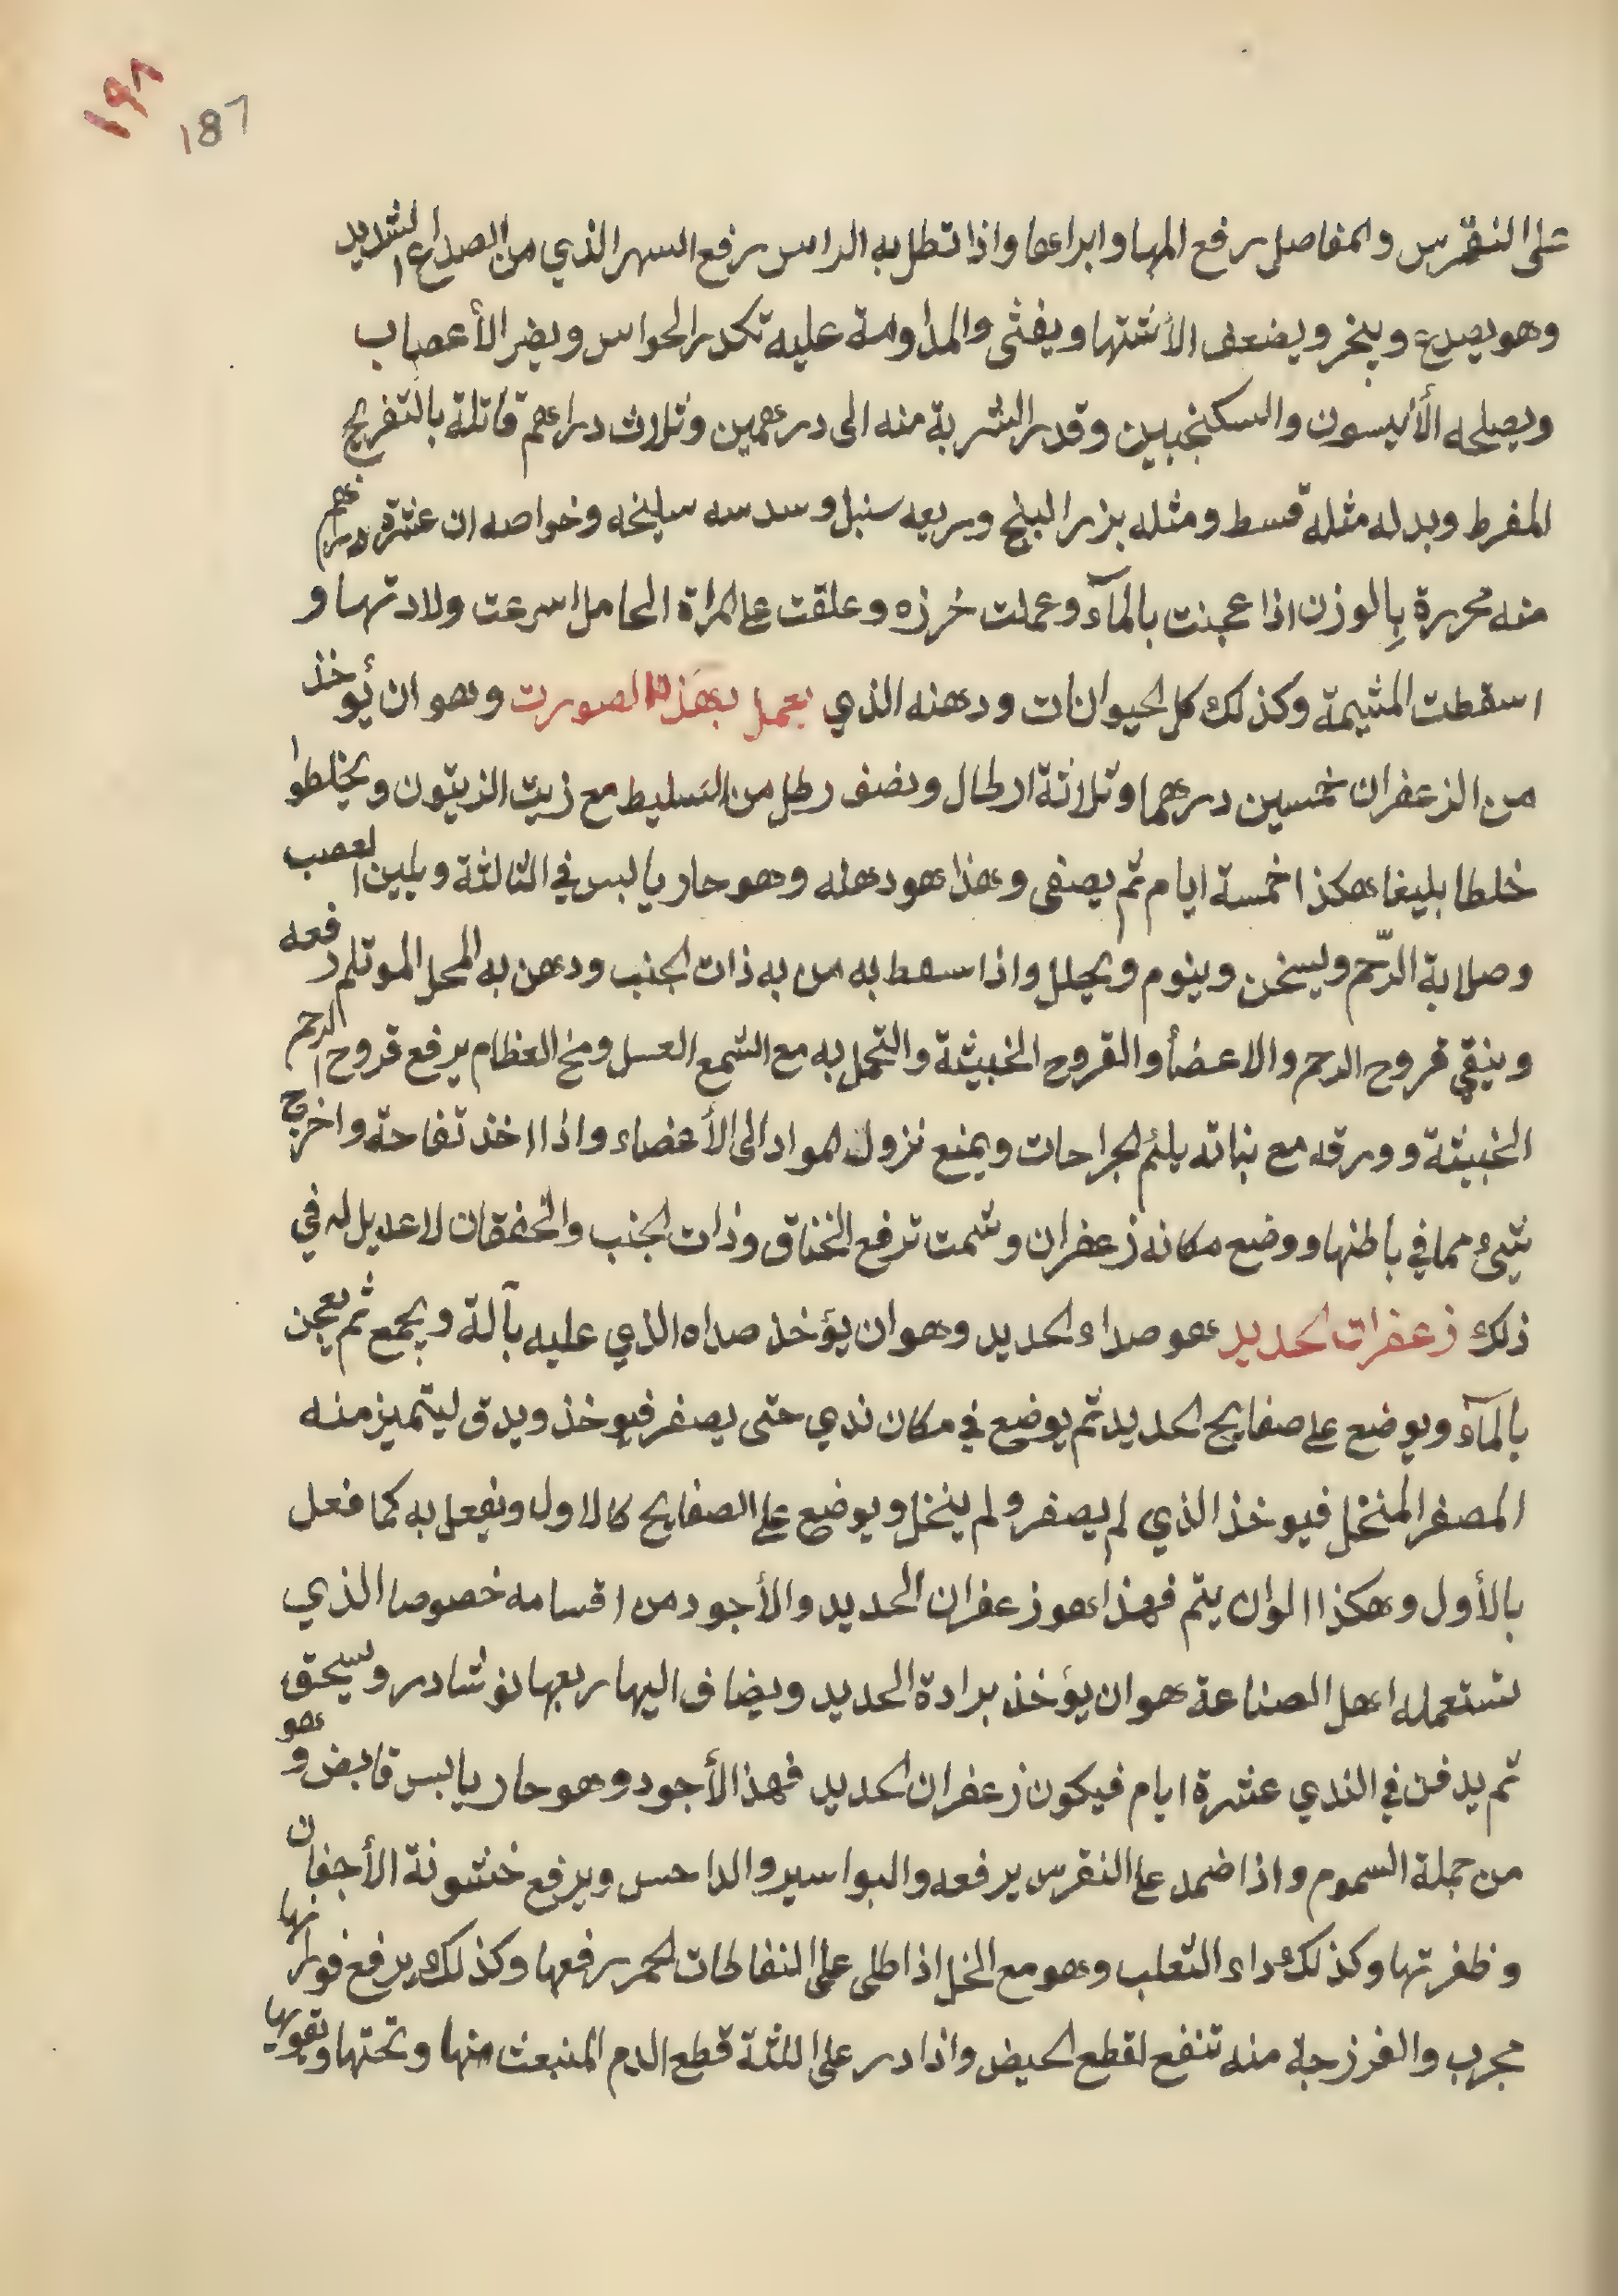 ١٩٨
187
على النقرس والمفاصل رفع المها وابراها واذا تطل به الراس رفع السهر الذي من الصداع الشديد
وهو يصدع ويبخر ويضعف الأشتها ويغثى والمداومة عليه تكدر الحواس ويضر الأعصاب
ويصلحه الأنيسون والسكنجبين وقدر الشربة منه الى درهمين وثلاث دراهم قاتلة بالتفريح
المفرط وبدله مثله قسط ومثله بزر البنج وربعه سنبل وسدسه سليخه وخواصه ان عشرة دراهم
منه محررة بالوزن اذا عجنت بالمآء وعملت خرزه وعلقت على المراة الحامل اسرعت ولادتها و
اسقطت المشيمة وكذلك كل الحيوانات ودهنه الذي يعمل بهذه الصورت وهو ان يؤخذ
من الزعفران خمسين درهما وثلاثة ارطال ونصف رطل من السليط مع زيت الزيتون ويخلطوا
خلطا بليغا هكذا خمسة ايام ثم يصفى وهذا هو دهنه وهو حار يابس في الثالثة ويلين العصب
وصلابة الرّحم ويسخن وينوم ويحلل واذا سعط به من به ذات الجنب ودهن به المحل الموتلم رفعه
وينقي قروح الرحم والاعضأ والقروح الخبيثة والتحمل به مع الشمع العسل ومخ العظام يرفع قروح الرحم
الخبيثة وورقه مع نباته يلئم الجراحات ويمنع نزول المواد الى الأعضاء واذا اخذ تفاحة واخرج
شيئ مما في باطنها ووضع مكانه زعفران وشمت ترفع الخناق وذات الجنب والخفقان لا عديل له في
ذلك زعفرات الحديد هو صداء الحديد وهو ان يؤخذ صداه الذي عليه بآلة ويجمع ثم يعجن
بالمآء ويوضع على صفايح الحديد ثم يوضع في مكان ندي حتى يصفر فيوخذ ويدق ليتميز منه
المصفر المنخل فيوخذ الذي لم يصفر ولم ينخل ويوضع على الصفايح كالاول ويفعل به كما فعل
بالأول وهكذا الوان يتم فهذا هو زعفران الحديد والأجود من اقسامه خصوصا الذي
تستعمله اهل الصناعة هو ان يؤخذ برادة الحديد ويضاف اليها ربعها نوشادر ويسحق
ثم يدفن في الندي عشرة ايام فيكون زعفران الحديد فهذا الأجود وهو حار يابس قابض وهو
من جملة السموم واذا ضمد على النقرس يرفعه والبواسير والداحس ويرفع خشونة الأجفان
وظفرتها وكذلك داء الثعلب وهو مع الخل اذا طلى على النفاطات الحمر رفعها وكذلك يرفع فورانها
مجرب والفرزجة منه تنفع لقطع الحيض واذا در على اللثة قطع الدم المنبعث منها وتحتها ويقويها